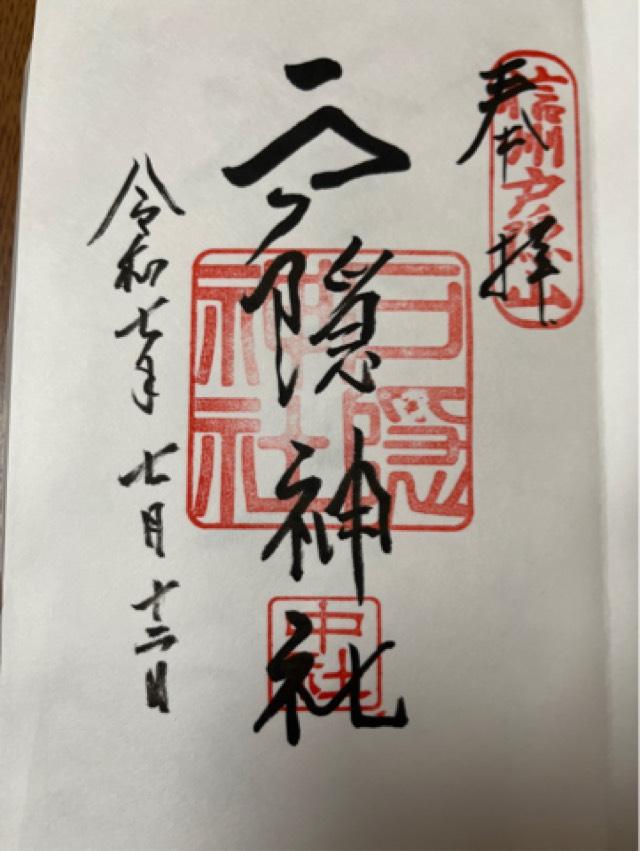 奉拝
信州戸隠山
戸隠神社
戸隠神社
中社
令和七年
七月十二日